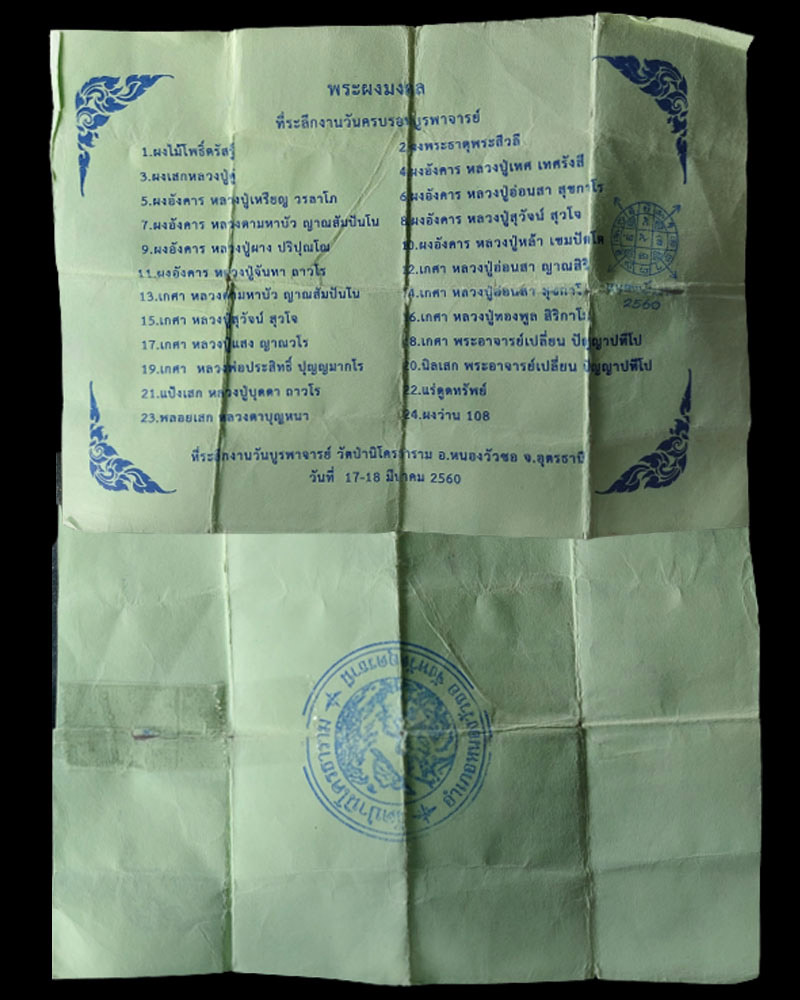 พระผงมงคล
ที่ระลึกงานวันครบรอบบูรพาจารย์
1.ผงไม้โพธิ์ตรัสรู้ 2.ผงพระธาตุพระสิวลี
3.ผงเสกหลวงปู่ดู่ 4.ผงอังคาร หลวงปู่เทศ เทศรังสี
5.ผงอังคาร หลวงปู่เหรียญ วรลาโภ 6.ผงอังคาร หลวงปู่อ่อนสา สุขกาโร
7.ผงอังคาร หลวงตามหาบัว ญาณสัมปันโน 8.ผงอังคาร หลวงปู่สุวัจน์ สุวโจ
9.ผงอังคาร หลวงปู่ผาง ปริปุณโณ 10.ผงอังคาร หลวงปู่หล้า เขมปัตโต
11.ผงอังคาร หลวงปู่จันทา ถาวโร 12.เกศา หลวงปู่อ่อนสา ญาณสิริ
13.เกศา หลวงตามหาบัว ญาณสัมปันโน 14.เกศา หลวงปู่อ่อนสา สุขกาโร
15.เกศา หลวงปู่สุวัจน์ สุวโจ 16.เกศา หลวงปู่ทองพูล สิริกาโม
17.เกศา หลวงปู่แสง ญาณวโร 18.เกศา พระอาจารย์เปลี่ยน ปัญญาปทีโป
19.เกศา หลวงพ่อประสิทธิ์ ปุญญมากโร 20.นิลเสก พระอาจารย์เปลี่ยน ปัญญาปทีโป
21.แป้งเสก หลวงปู่บุดดา ถาวโร 22.แร่ดูดทรัพย์
23.พลอยเสก หลวงตาบุญหนา 24.ผงว่าน 108
2560
ที่ระลึกงานวันบูรพาจารย์ วัดป่านิโครธาราม อ.หนองวัวซอ จ.อุดรธานี
วันที่ 17-18 มีนาคม 2560
วัดป่านิโครธาราม
อำเภอหนองวัวซอ จังหวัดอุดรธานี